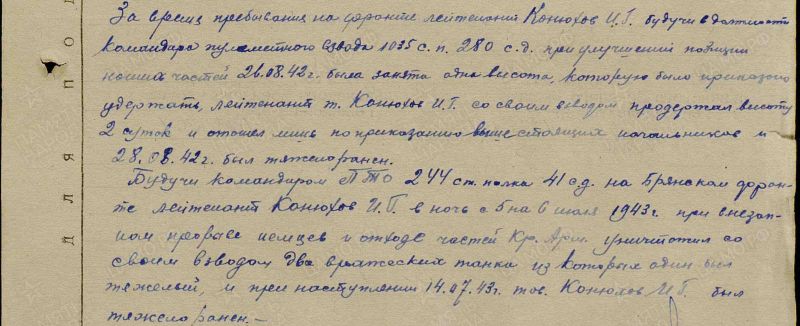 За время пребывания на фронте лейтенант Конюхов И.Г. будучи в должности
командира пулеметного взвода 1035 с.п. 280 с.д. при улучшении позиции
наших частей 26.08.42г. была занята одна высота, которую было приказано
удержать, лейтенант т. Конюхов И.Г. со своим взводом продержал высоту
2 суток и отошел лишь по приказанию выше стоящих начальников и
28.08.42г. был тяжело ранен.
Будучи командиром ПТО 244 ст. полка 41 с.д. на Брянском фрон-
те лейтенант Конюхов И.Г. в ночь с 5 на 6 июля 1943г. при внезап-
ном прорыве немцев и отходе частей Кр. Арм. уничтожил со
своим взводом два вражеских танка из которых один был
тяжелый, и при наступлении 14.07.43г. тов. Конюхов И.Г. был
тяжело ранен.—
ДЛЯ ПОД